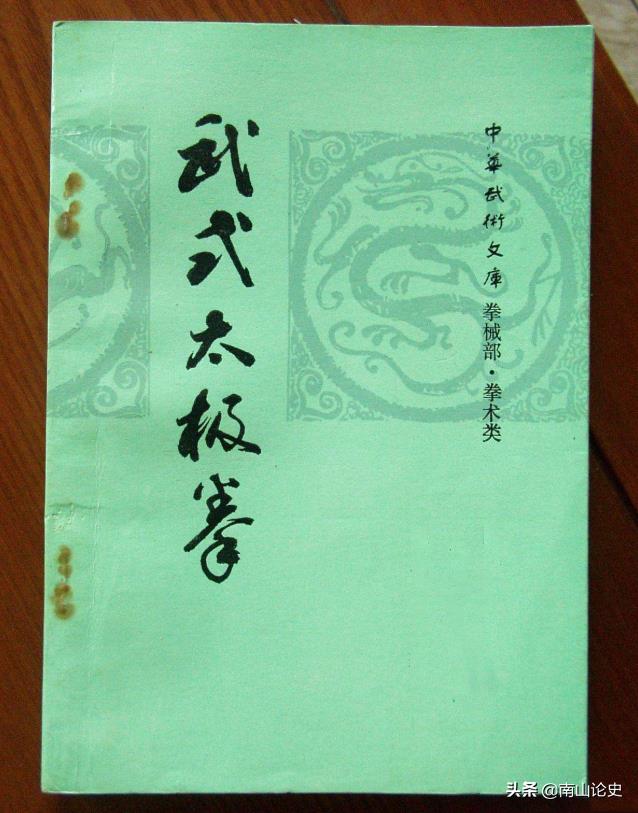 中华武術文庫 拳械部·拳术类
武式太极拳
头条 @南山论史